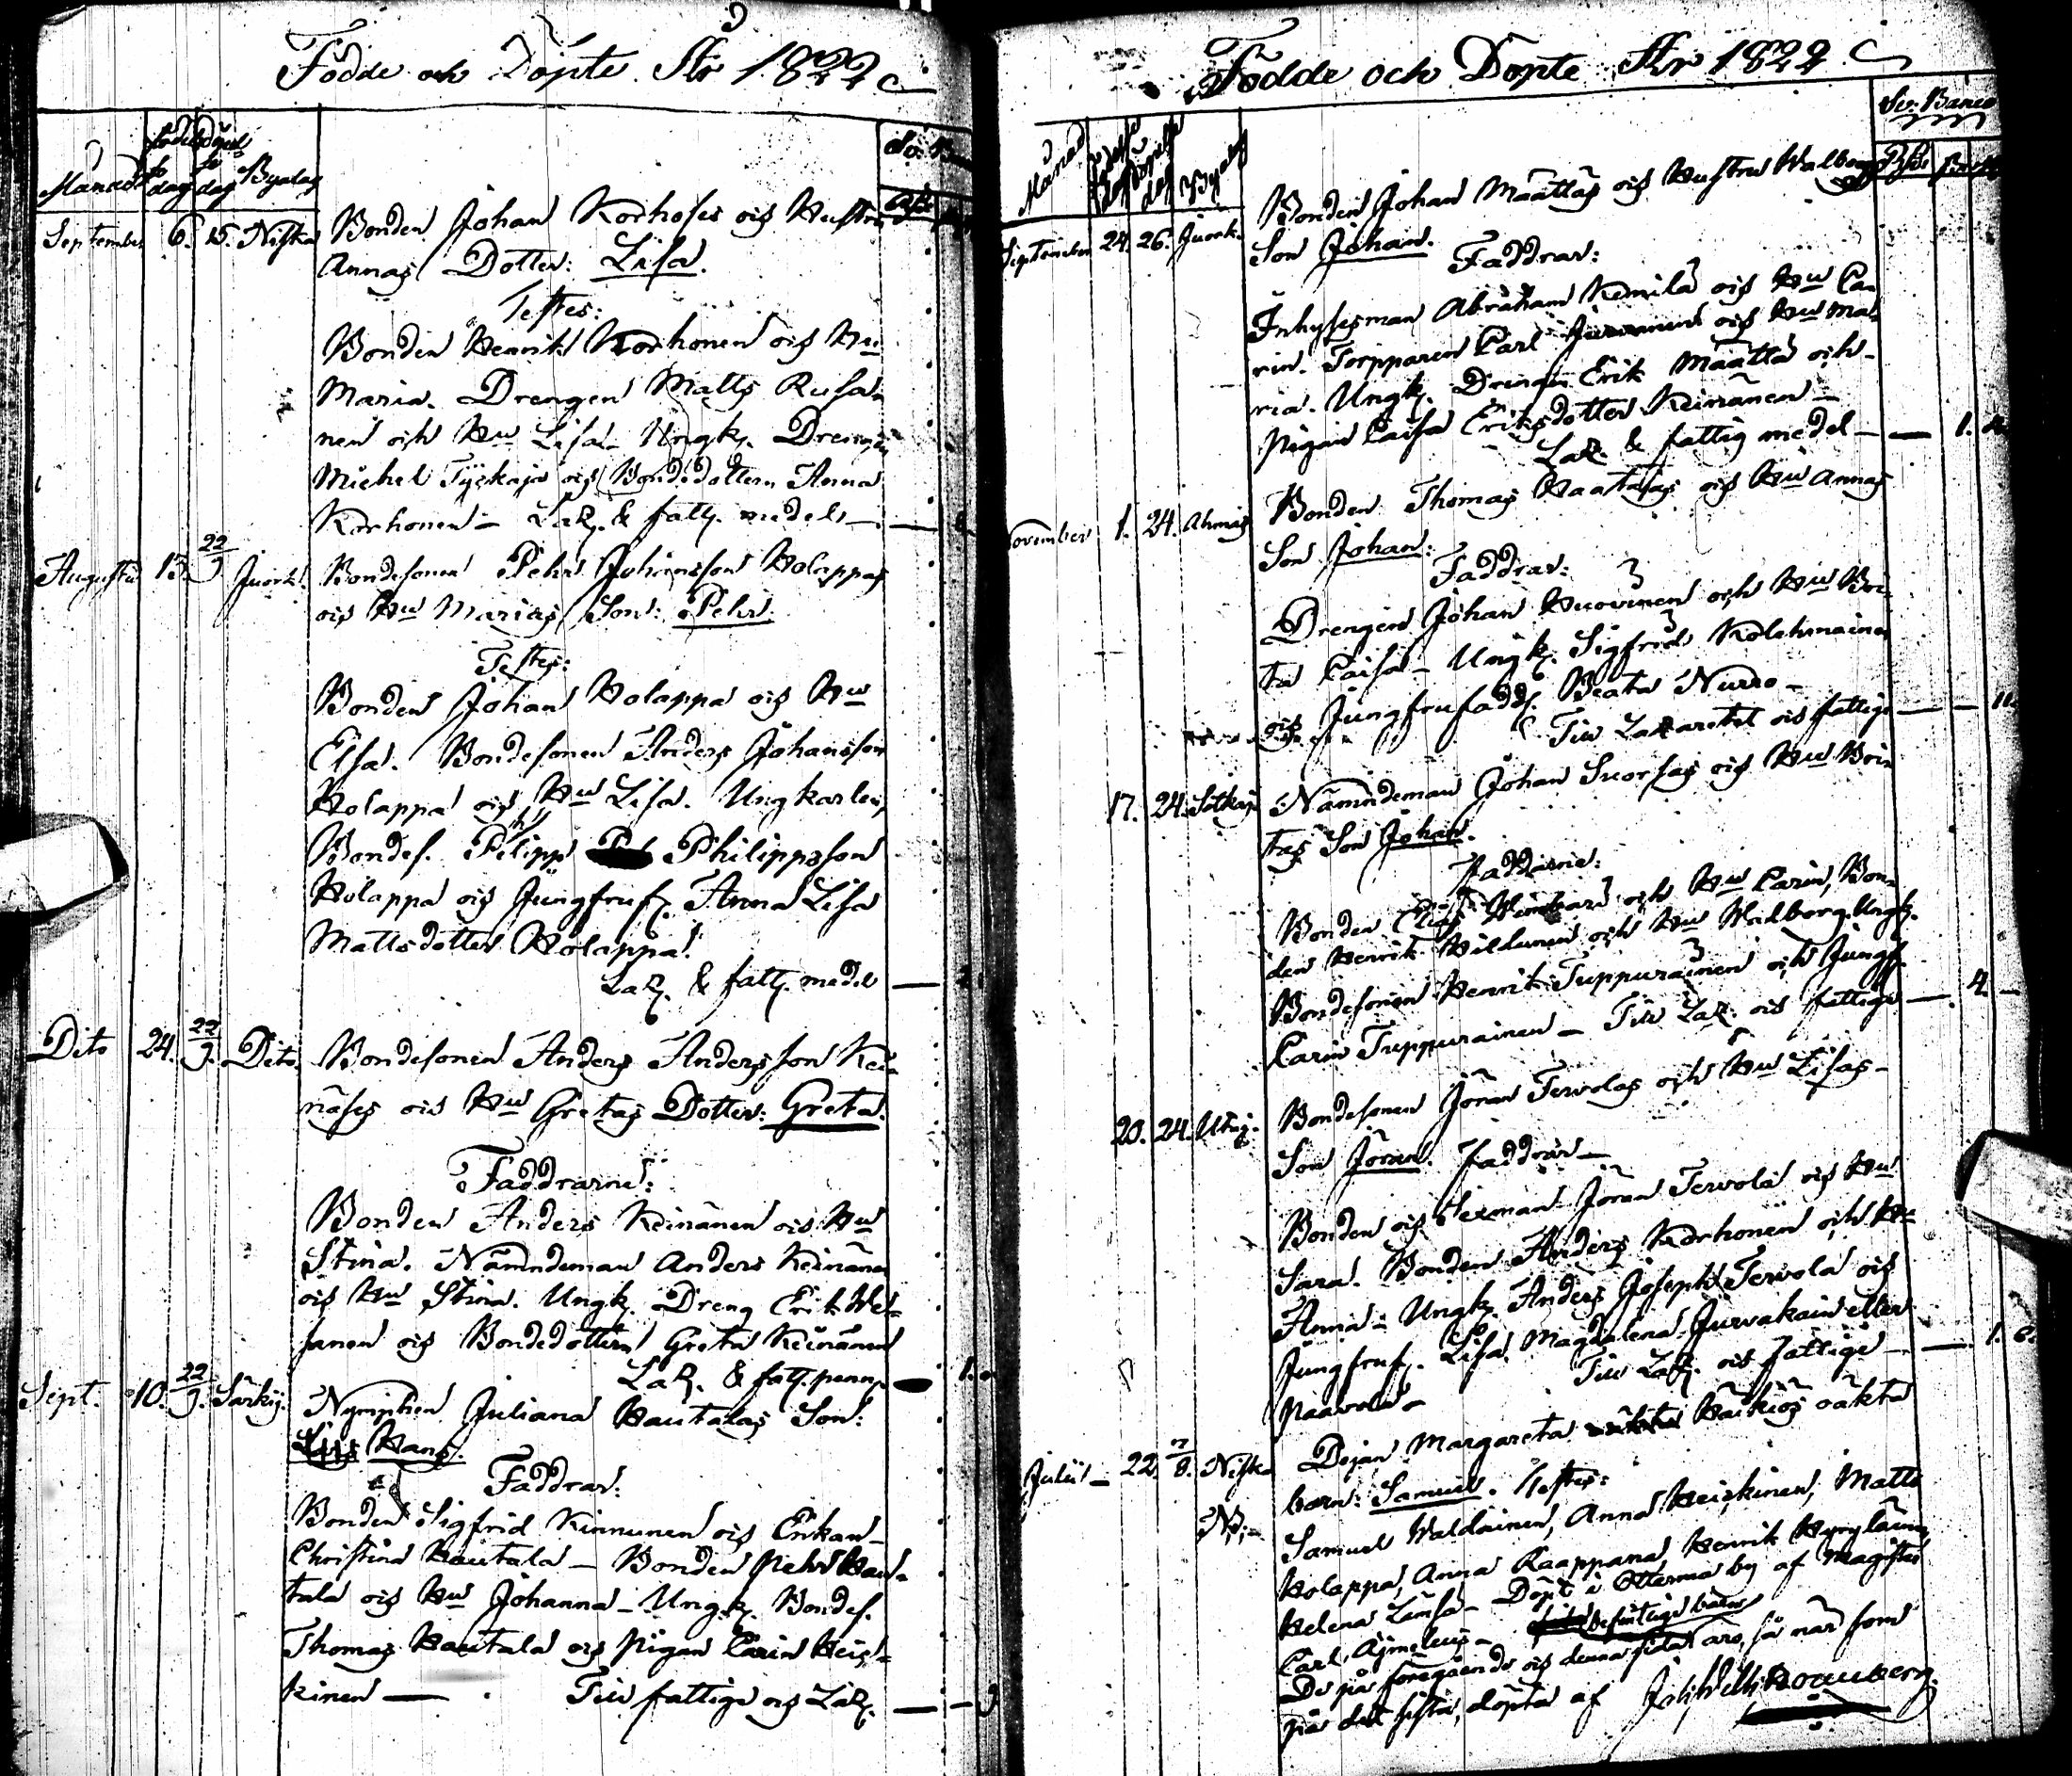 Födde och Döpte År 1822
Månad födelse dag döpelse dag Byalag
Sv. Banco
Rdr
September 6. 15. Niska
Bonden Johan Korhoses och Hustru
Annas Dotter: Lisa.
Testes:
Bonden Henrik Korhonen och Hu
Maria. Drengen Matts Rusa-
nen och Hu Lisa. Ungk. Drengen
Michel Tyckäjä och Bondedottern Anna
Korhonen – Laz. & fatt. medel –
Augusti 13. 22/9 Juork.
Bondesonen Pehr Johansson Holappas
och Hu Marias Son: Pehr.
Testes:
Bonden Johan Holappa och Hu
Elsa. Bondesonen Anders Johansson
Holappa och Hu Lisa. Ungkarlen,
Bondes. Philipp Philippsson
Holappa och Jungfruf. Anna Lisa
Mattsdotter Holappa.
Laz. & fatt. medel –
Dito 24. 22/9. Dito.
Bondesonen Anders Andersson Kei-
näses och Hu Gretas Dotter: Greta.
Faddrarne:
Bonden Anders Keinänen och Hu
Stina. Nämndeman Anders Keinänen
och Hu Stina. Ungk. Dreng Erik
sanen och Bondedottern Greta Keinänen
Laz. & fatt. penn. – 1.
Sept. 10. 22/9. Särkij.
Nymphen Juliana Hautalas Son:
Hans.
Faddrar:
Bonden Sigfrid Kinnunen och Enkan
Christina Hautala – Bonden Pehr Hau-
tala och Hu Johanna – Ungk. Bondes.
Thomas Hautala och Pigan Carin Heis-
kinen – Till fattige och Laz. –
Födde och Döpte År 1822
Månad Födelse dag Döpelse dag Byalag
Sv. Banco
Rdr
September 24. 26. Juork.
Bonden Johan Määttäs och Hustru Walborgs
Son Johan.
Faddrar:
Inhysesman Abraham Kemilä och Hu Ca-
rin. Torpparen Carl och Hu Ma-
ria. Ungk. Drengen Erik Määttä och
Pigan Caisa Eriksdotter Keinänen –
Laz. & fattig medel – 1.
November 1. 24. Ahmas
Bonden Thomas Haatajas och Hu Annas
Son Johan:
Faddrar:
Drengen Johan Huovinen och Hu Bri-
ta Caisa – Ungk. Sigfrid Kolehmainen
och Jungfrufadd. Beata Nurro –
Till Lazarettet och fattige –
17. 24. Sotkaj.
Nämndeman Johan Suorsas och Hu Bri-
tas Son Johan.
Faddrarne:
Bonden och Hu Carin, Bon-
den Henrik Hildunen och Hu Walborg. Ungk.
Bondesonen Henrik Tuppurainen och Jungf.
Carin Tuppurainen – Till Laz. och fattige – 4. –
20. 24. Utaj.
Bondesonen Jöran Tervolas och Hu Lisas
Son Jöran. Faddrar –
Bonden och Sexman Jöran Tervola och Hu
Sara. Bonden Anders Korhonen och Hu
Anna – Ungk. Anders Joseph Tervola och
Jungfruf. Lisa Magdalena Jurvakain eller
Paavola –
Till Laz. och fattige – 1.
Julii – 22. /8. Niska
NB.
Pigan Margareta Haikiös oäkta
barn: Samuel. Testes:
Samuel Waldoinen, Anna Heiskinen, Matts
Holappa, Anna Kaappana, Henrik
Helena Lämsä – Döpt i Ottermä by af Magister
Carl Ajmelæus –
befintlige barn
De på föregående och denna sida äro, så när som
på det sista, döpta af Joh. Wilh. Bomberg.